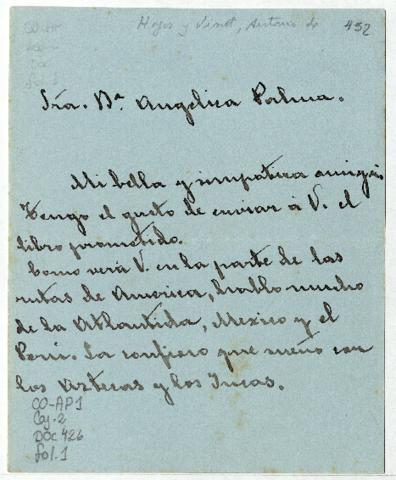 Hoyos y Vinent, Antonio de 452
CO-AP
Sra. Dª Angelica Palma.
Mi bella y simpatica amiga:
Tengo el gusto de enviar á V. el
libro prometido.
Como verá V. en la parte de las
rutas de America, hablo mucho
de la Atlantida, Mexico y el
Perú. La confieso que sueño con
los Aztecas y los Incas.
CO-AP1
Caj-2
DOC 426
fol. 1